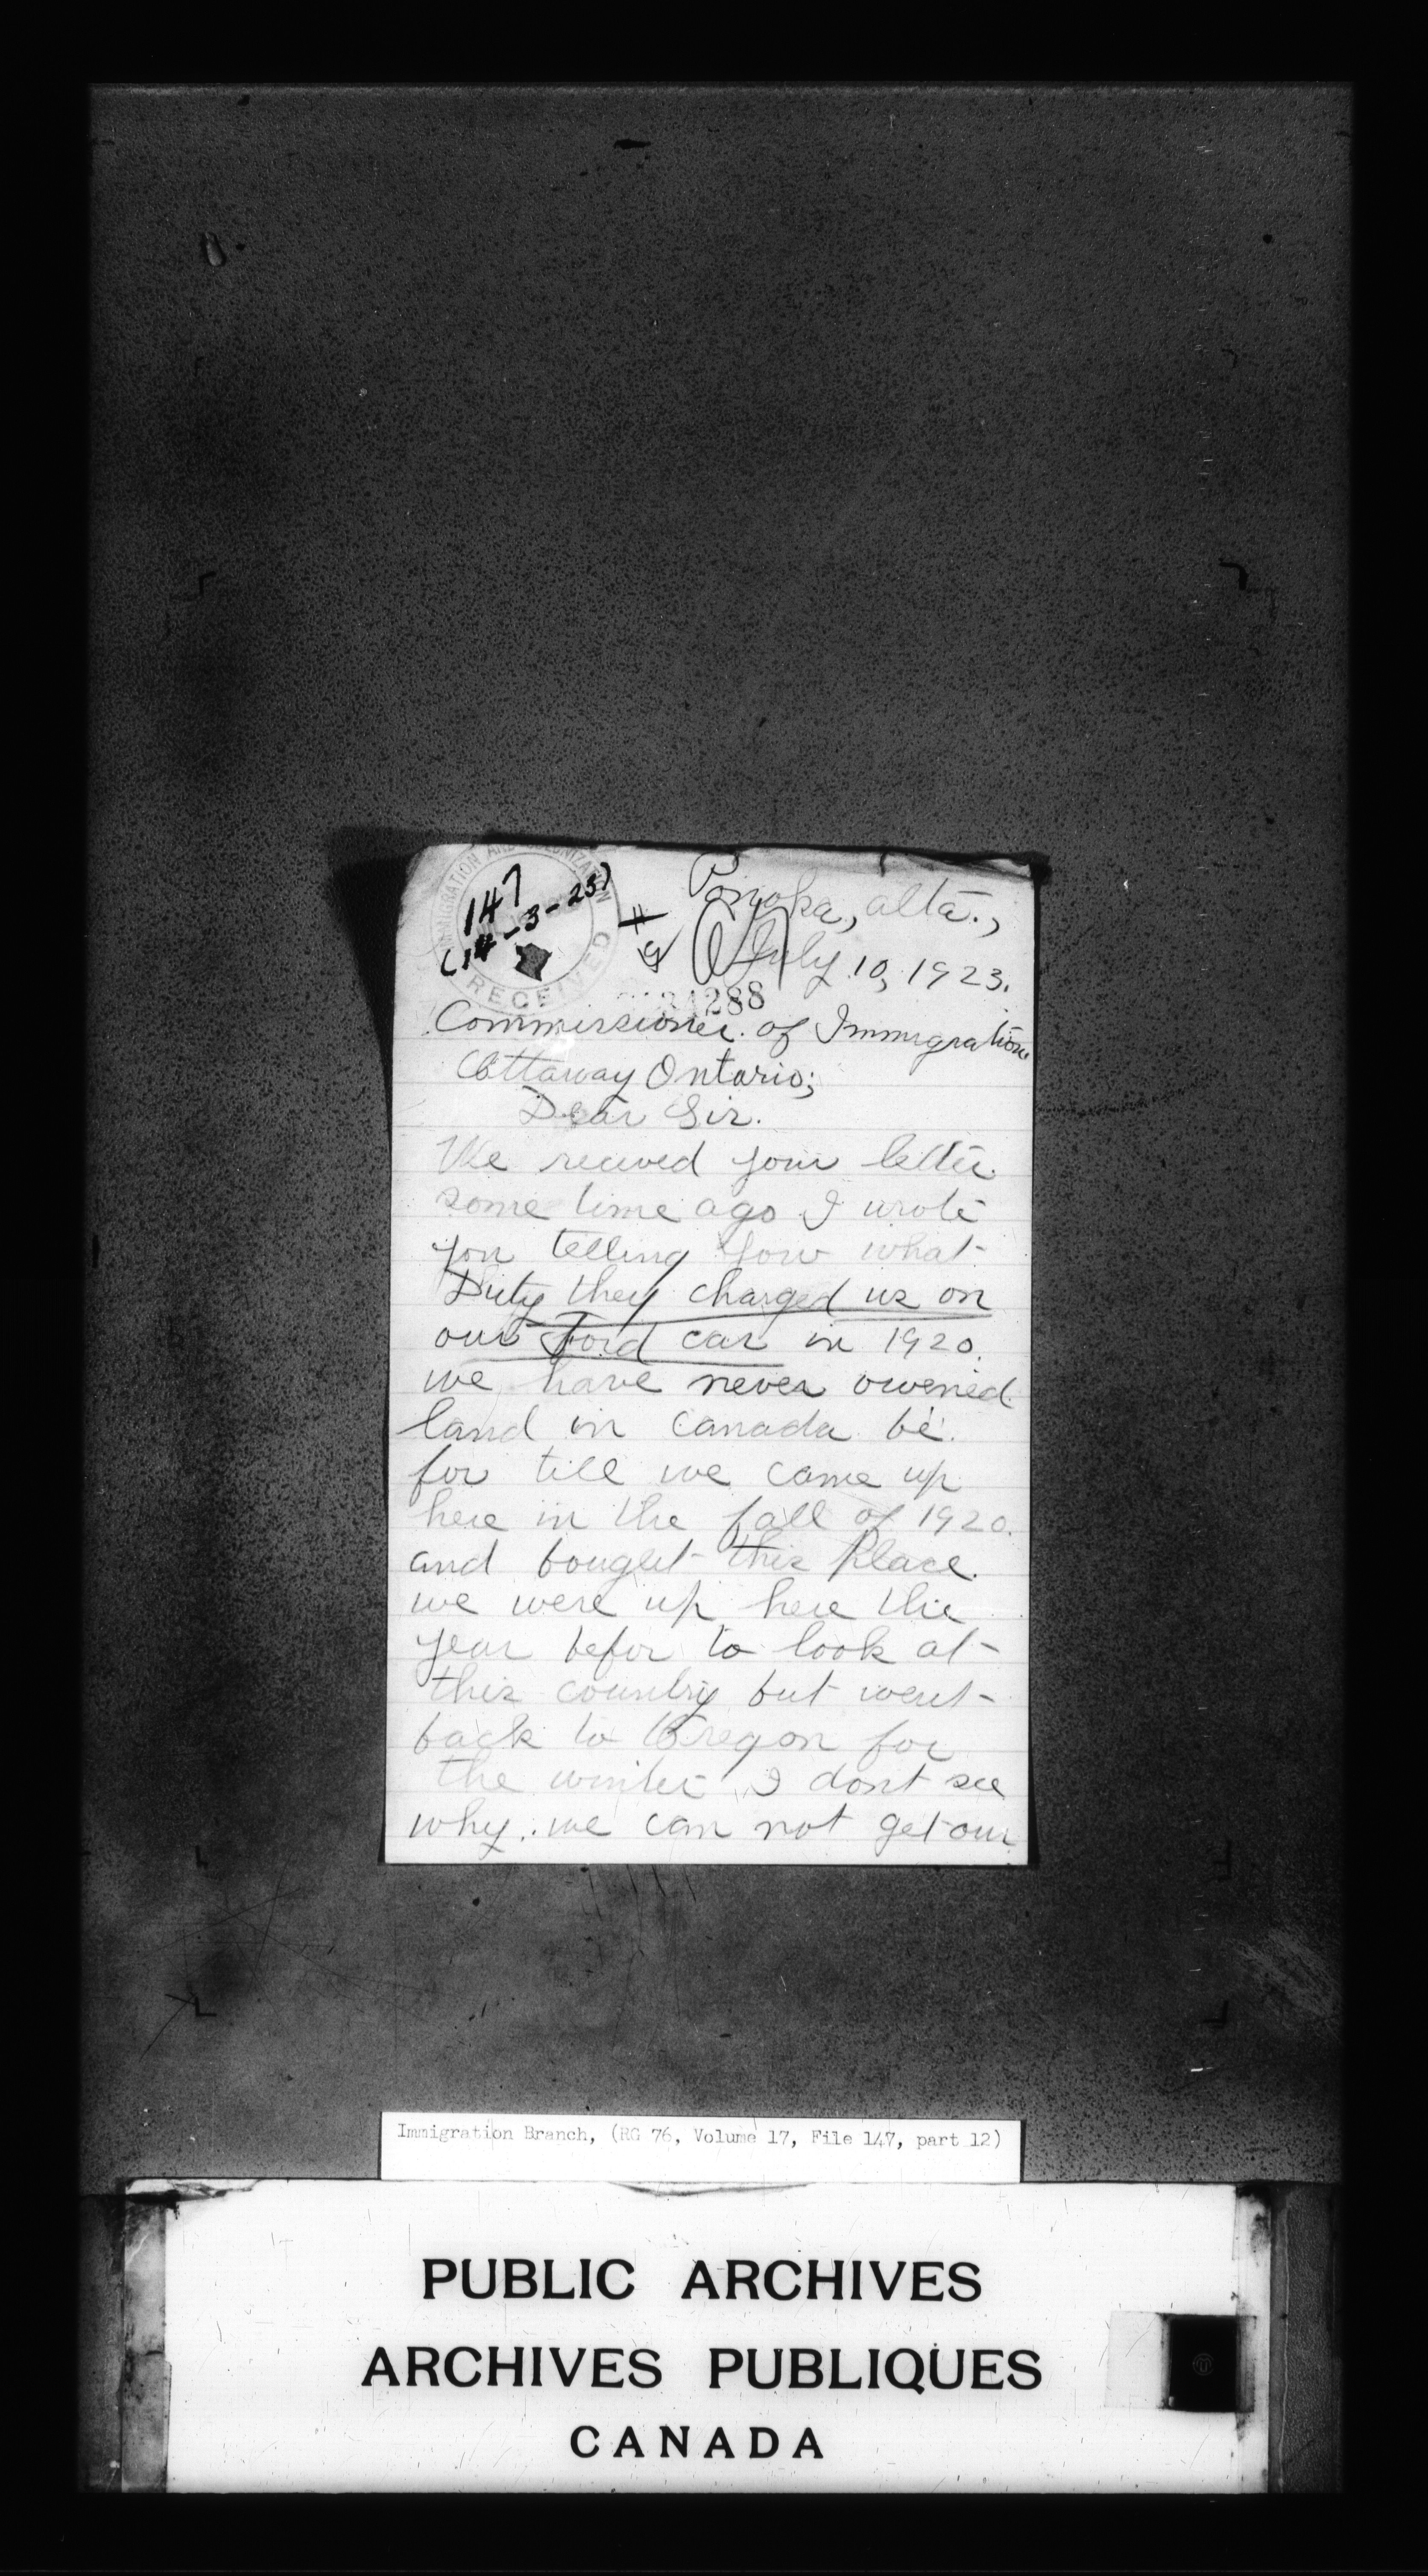 IMMIGRATION AND COLONIZATION
RECEIVED
147
(14-3-25)
#
Ponoka, alta.,
July 10, 1923.
4288
Commissioner of Immigration
Ottaway Ontario;
Dear Sir.
We recived your letter
some time ago I wrote
you telling your what
Duty they charged us on
our Ford car in 1920.
we have never owened
land in Canada be
for till we came up
here in the fall of 1920.
and bought this Place.
we were up here the
year befor to look at
this country but went
back to Oregon for
the winter I dont see
why we can not get our
Immigration Branch, (RG 76, Volume 17, File 147, part 12)
PUBLIC ARCHIVES
ARCHIVES PUBLIQUES
CANADA